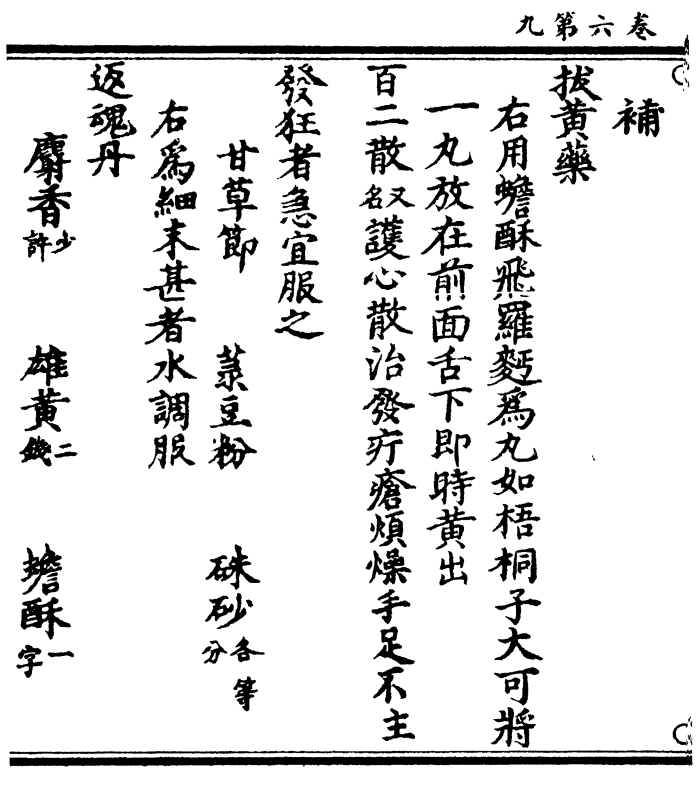 卷六第九
補
拔黃藥
右用蟾酥飛羅麪爲丸如梧桐子大可將
一丸放在前面舌下即時黃出
百二散又名護心散治發疔瘡煩燥手足不主
發狂者急宜服之
甘草節 菉豆粉 硃砂各等分
右爲細末甚者水調服
返魂丹
麝香少許 雄黃二錢 蟾酥一字